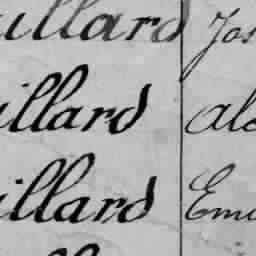 illard Jos
illard Ale
illard Emi